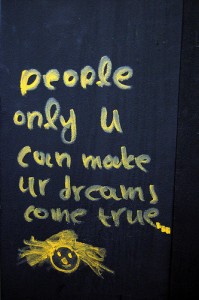 people
only u
can make
ur dreams
come true...